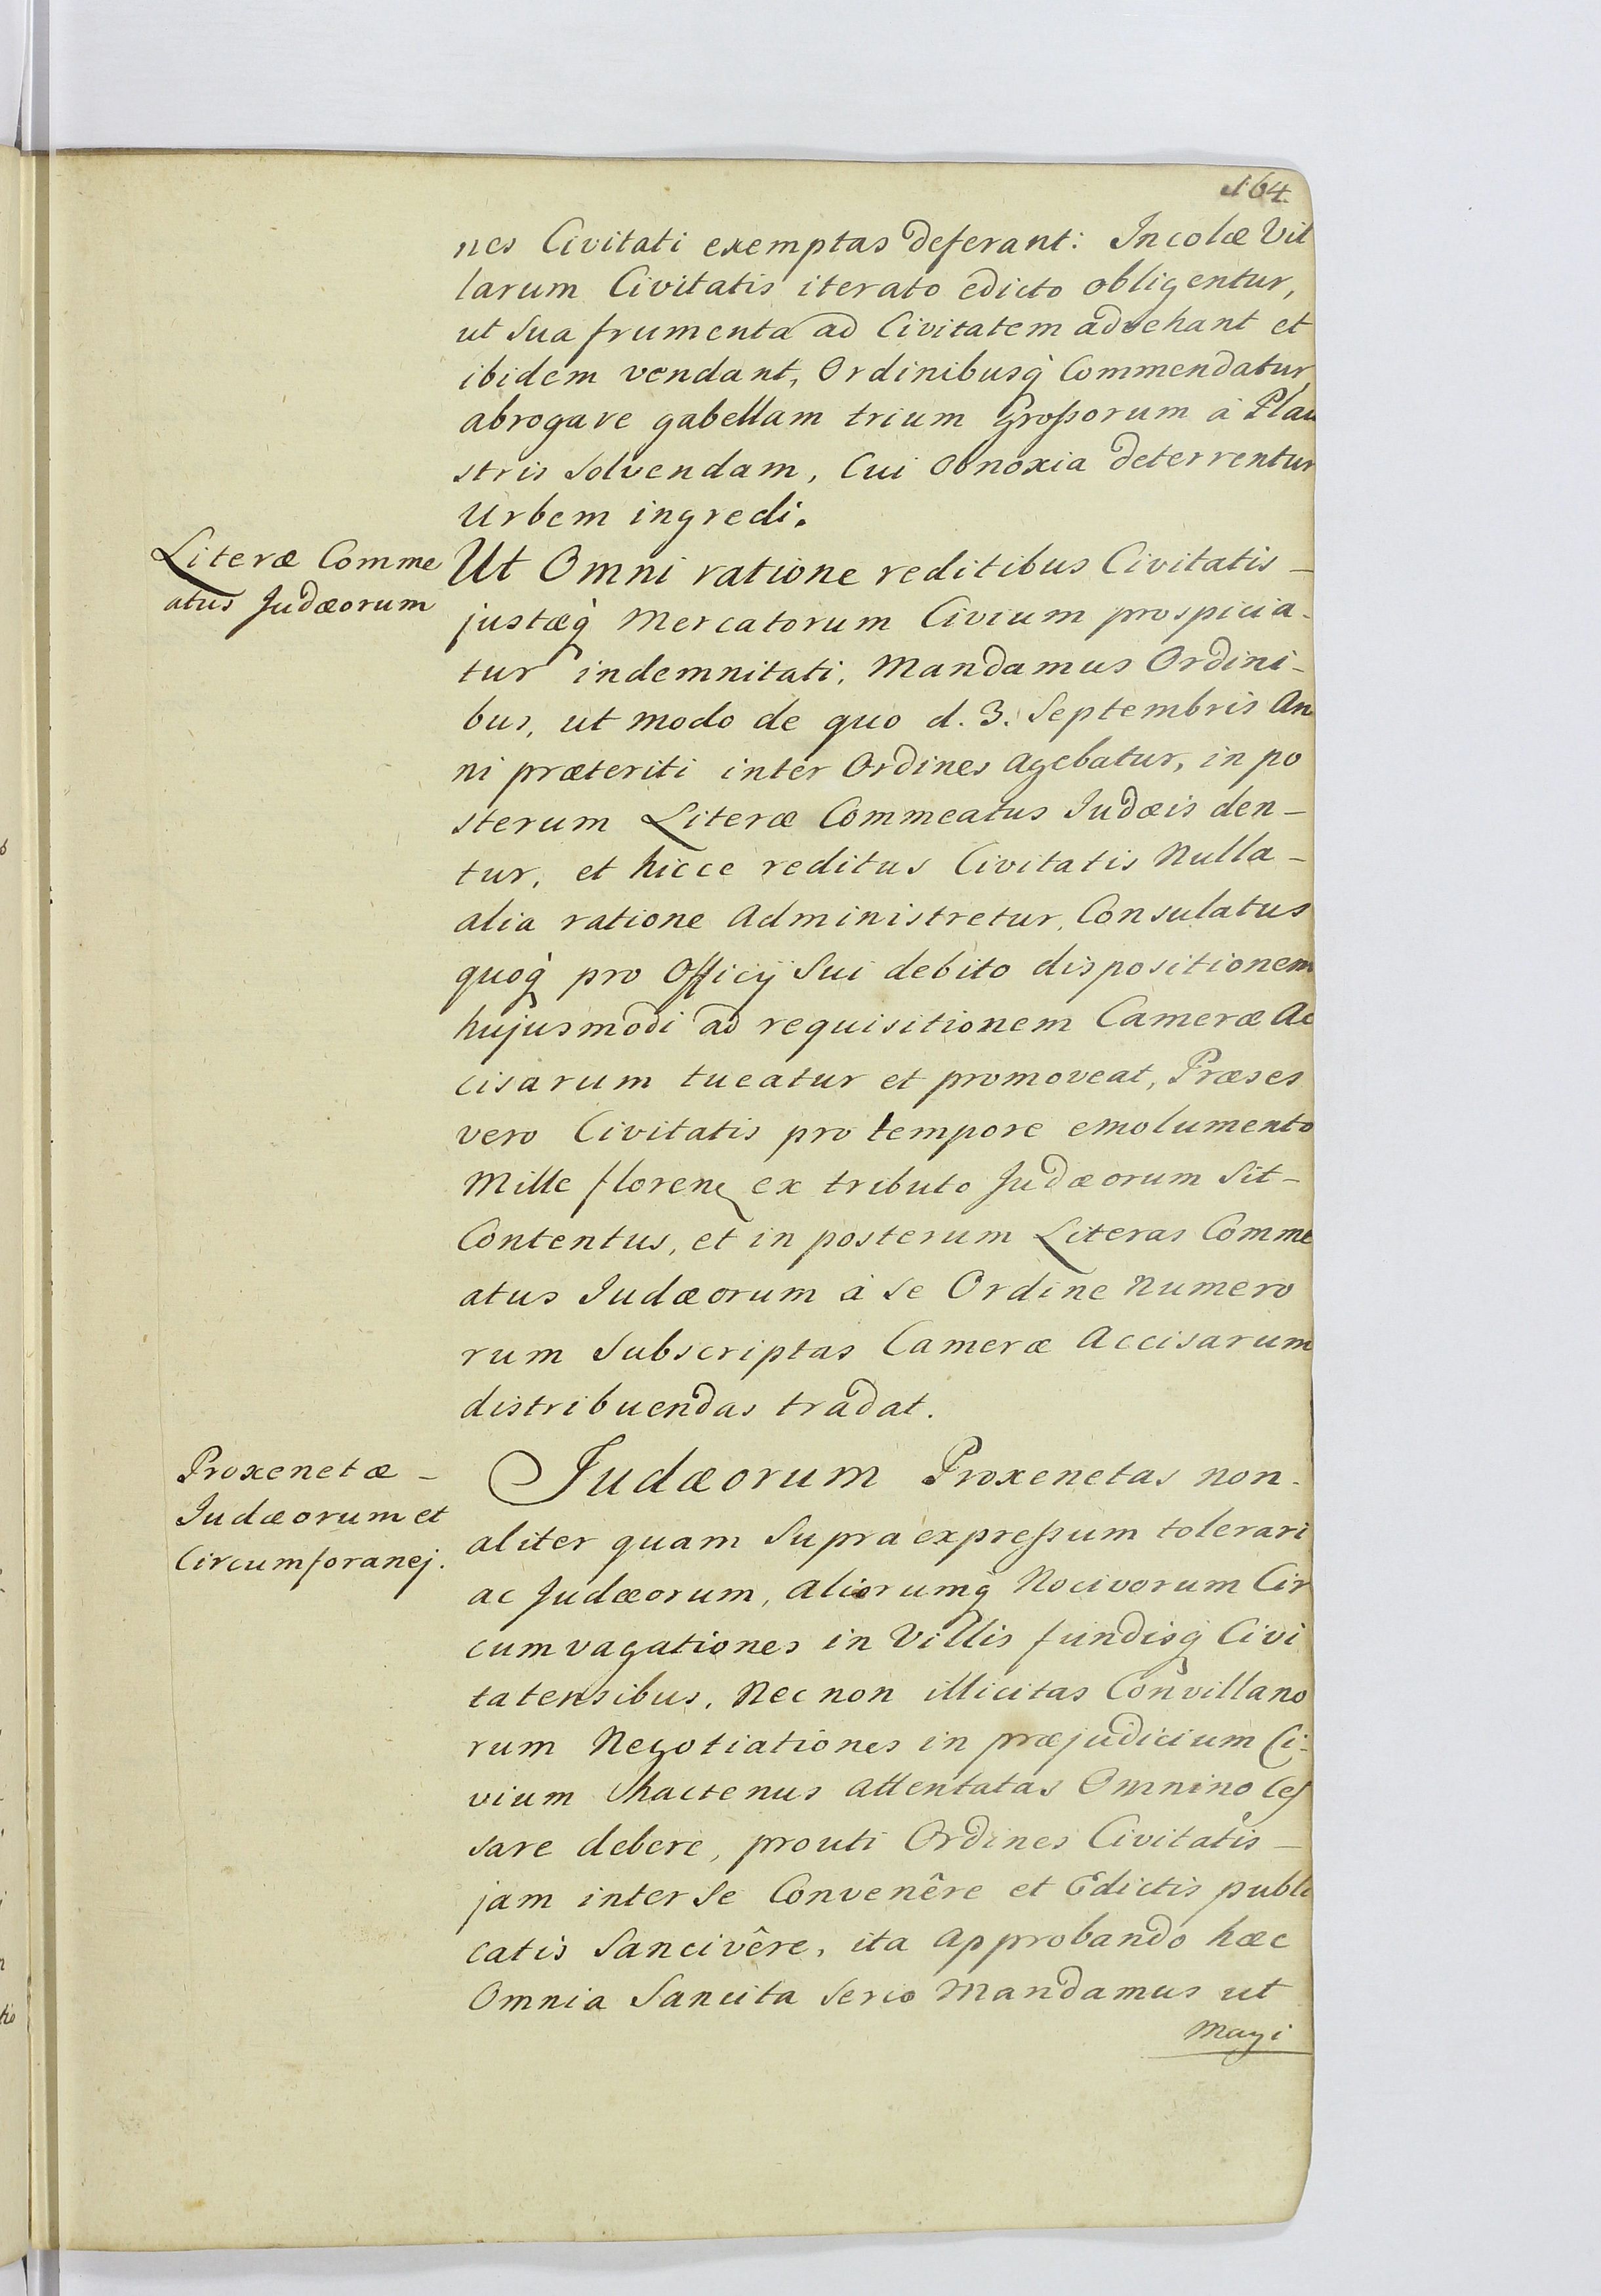 164.
nes Civitati exemptas deferant: Incolæ Vil
larum Civitatis iterato edicto obligentur,
ut sua frumenta ad Civitatem advehant et
ibidem vendant, Ordinibusq̀ Commendatur,
abrogare gabellam trium Großorum à Plau
stris solvendam, Cui Obnoxia deterrentur
Urbem ingredi.
Literæ Comme
atus Judæorum
Ut Omni ratione reditibus Civitatis –
justæq̀ Mercatorum Civium prospicia-
tur indemnitati, Mandamus Ordini-
bus, ut modo de quo d. 3. Septembris An
ni præteriti inter Ordines agebatur, in po
sterum Literæ Commeatus Judæis den –
tur, et hicce reditus Civitatis Nulla –
alia ratione Administretur, Consulatus
quoq̀ pro Officij Sui debito dispositionem
hujusmodi ad requisitionem Cameræ Ac
cisarum tueatur et promoveat, Præses
vero Civitatis pro tempore emolumento
Mille floren ex tributo Judæorum Sit –
Contentus, et in posterum Literas Comme
atus Judæorum à se Ordine Numero
rum Subscriptas Cameræ Accisarum
distribuendas tradat.
Proxenetæ –
Judæorum et
Circumforanej.
Judæorum Proxenetas non-
aliter quam Supra expreßum tolerari
ac Judæorum, aliorumq̀ Nocivorum Cir
cumvagationes in Villis fundisq̀ Civi
tatensibus, Nec non illicitas Convillano
rum Negotiationes in præjudicium Ci-
vium hactenus attentatas Omnino Ces
sare debere, prouti Ordines Civitatis –
jam inter Se Convenêre et Edictis publi
catis Sancivêre, ita Approbando hæc
Omnia Sancita serio Mandamus ut
Magi